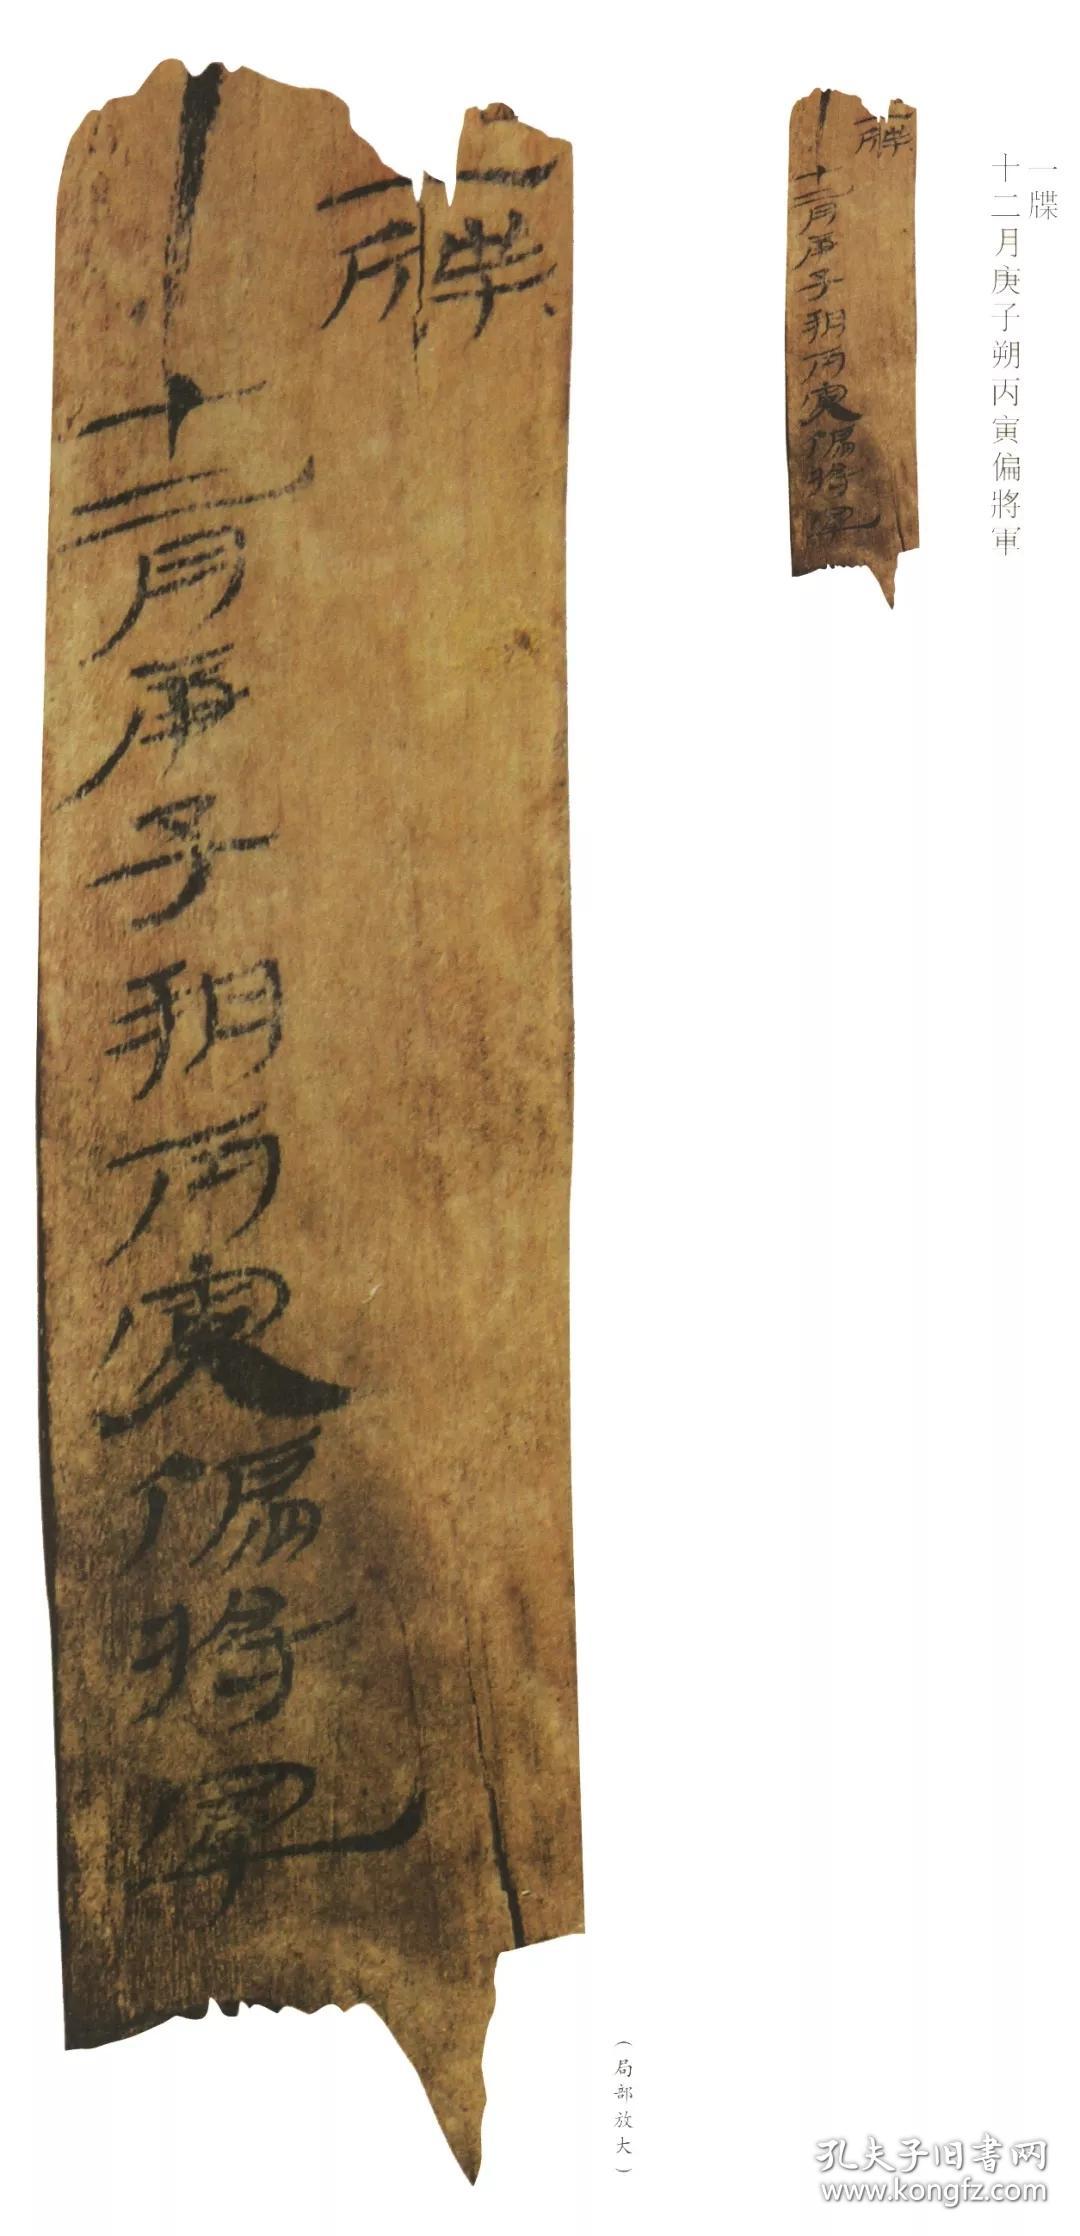 一牒
十二月庚子朔丙寅偏將軍
一牒
十二月庚子朔丙寅偏將軍
一牒
十二月庚子朔丙寅偏將軍
（局部放大）
孔夫子旧书网
www.kongfz.com